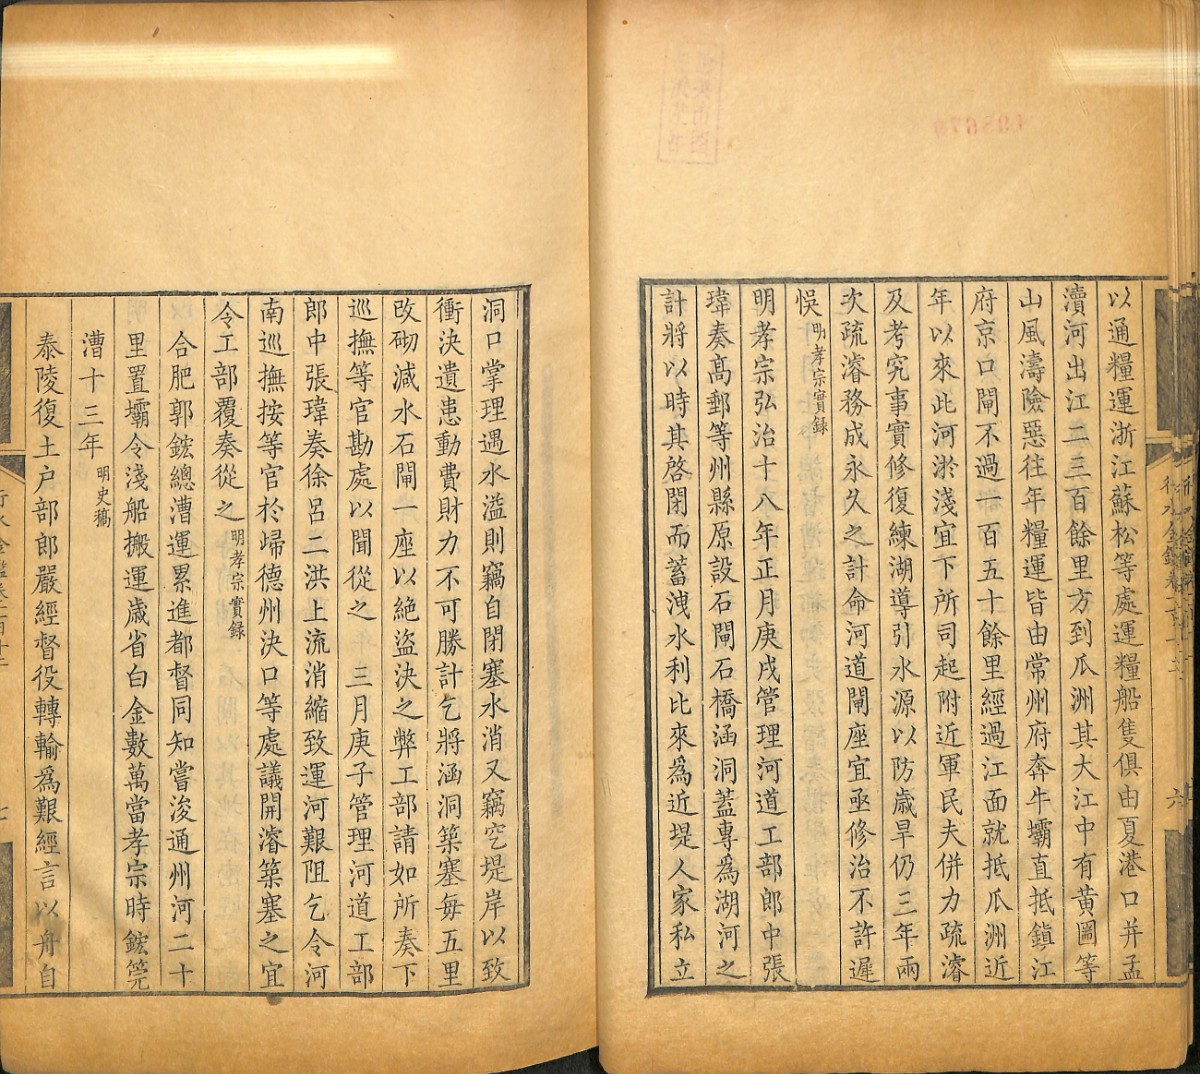 以通糧運浙江蘇松等處運糧船隻俱由夏港口并孟
瀆河出江二三百餘里方到瓜洲其大江中有黄圖等
山風濤險惡往年糧運皆由常州府奔牛壩直抵鎮江
府京口閘不過一百五十餘里經過江面就抵瓜洲近
年以來此河淤淺宜下所司起附近軍民夫併力疏濬
及考究事實修復練湖導引水源以防歲旱仍三年兩
次疏濬務成永久之計命河道閘座宜亟修治不許遲
悞明孝宗實録
明孝宗弘治十八年正月庚戌管理河道工部郎中張
瑋奏髙郵等州縣原設石閘石橋涵洞蓋專為湖河之
計將以時其啓閉而蓄洩水利比來為近堤人家私立
洞口掌理遇水溢則竊自閉塞水消又竊穵堤岸以致
衝決遺患動費財力不可勝計乞將涵洞築塞毎五里
改砌減水石閘一座以絶盜決之弊工部請如所奏下
巡撫等官勘處以聞從之 三月庚子管理河道工部
郎中張瑋奏徐呂二洪上流消縮致運河艱阻乞令河
南巡撫按等官於歸德州決口等處議開濬築塞之宜
令工部覆奏從之明孝宗實録
合肥郭鋐總漕運累進都督同知嘗浚通州河二十
里置壩令淺船搬運歳省白金數萬當孝宗時鋐筦
漕十三年明史稿
泰陵復土户部郎嚴經督役轉輸為艱經言以舟自